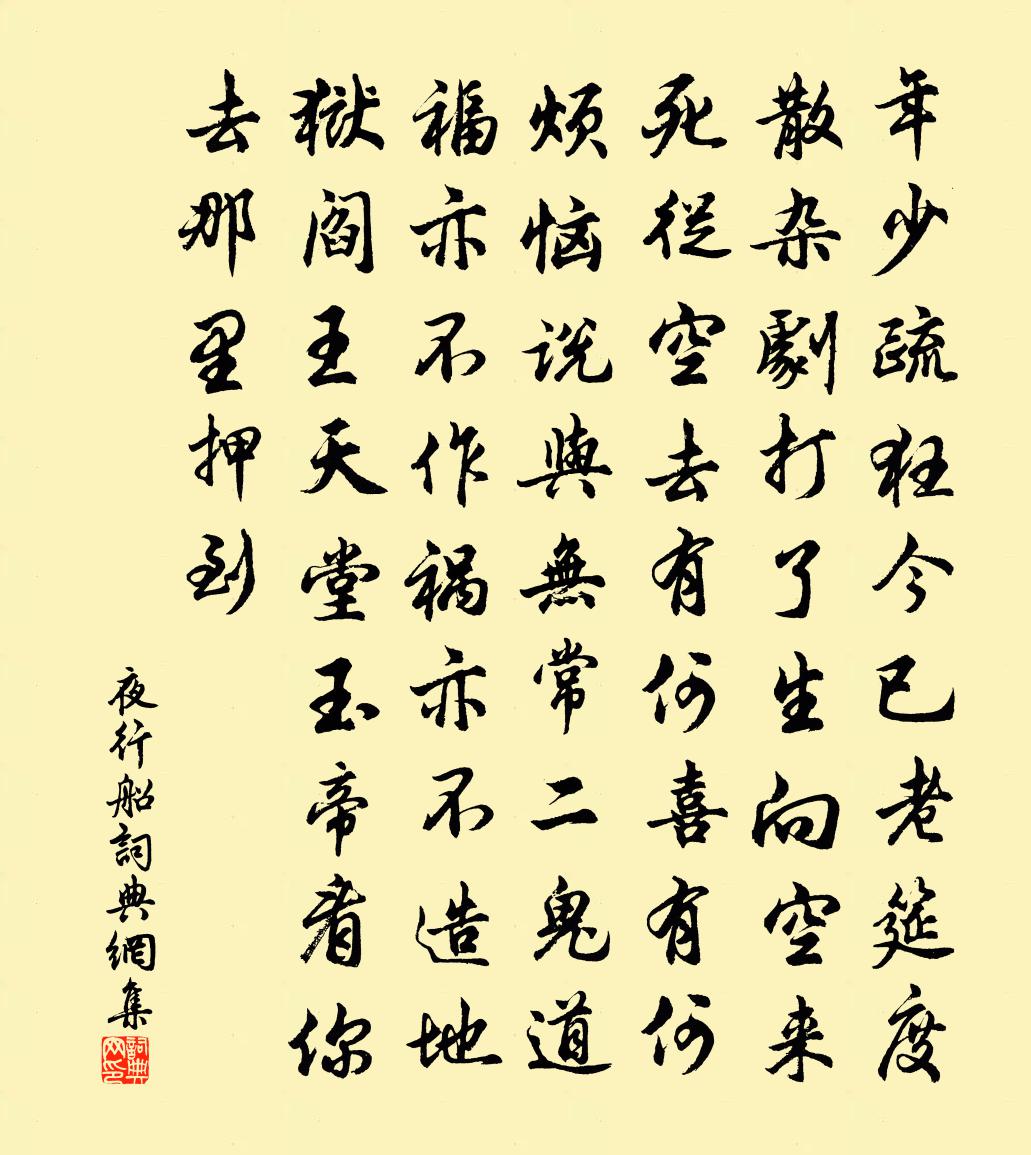 年少疏狂今已老筵度
散杂劇打了生向空来
死從空去有何喜有何
烦恼说與無常二鬼道
福亦不作祸亦不造地
獄阎王天堂玉帝看你
去那里押到
夜行船詞典網集
詞典网印